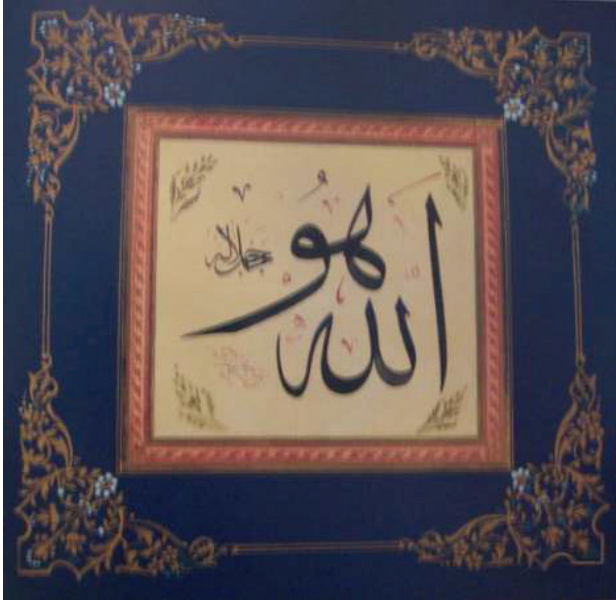 هو
الله
جل جلاله